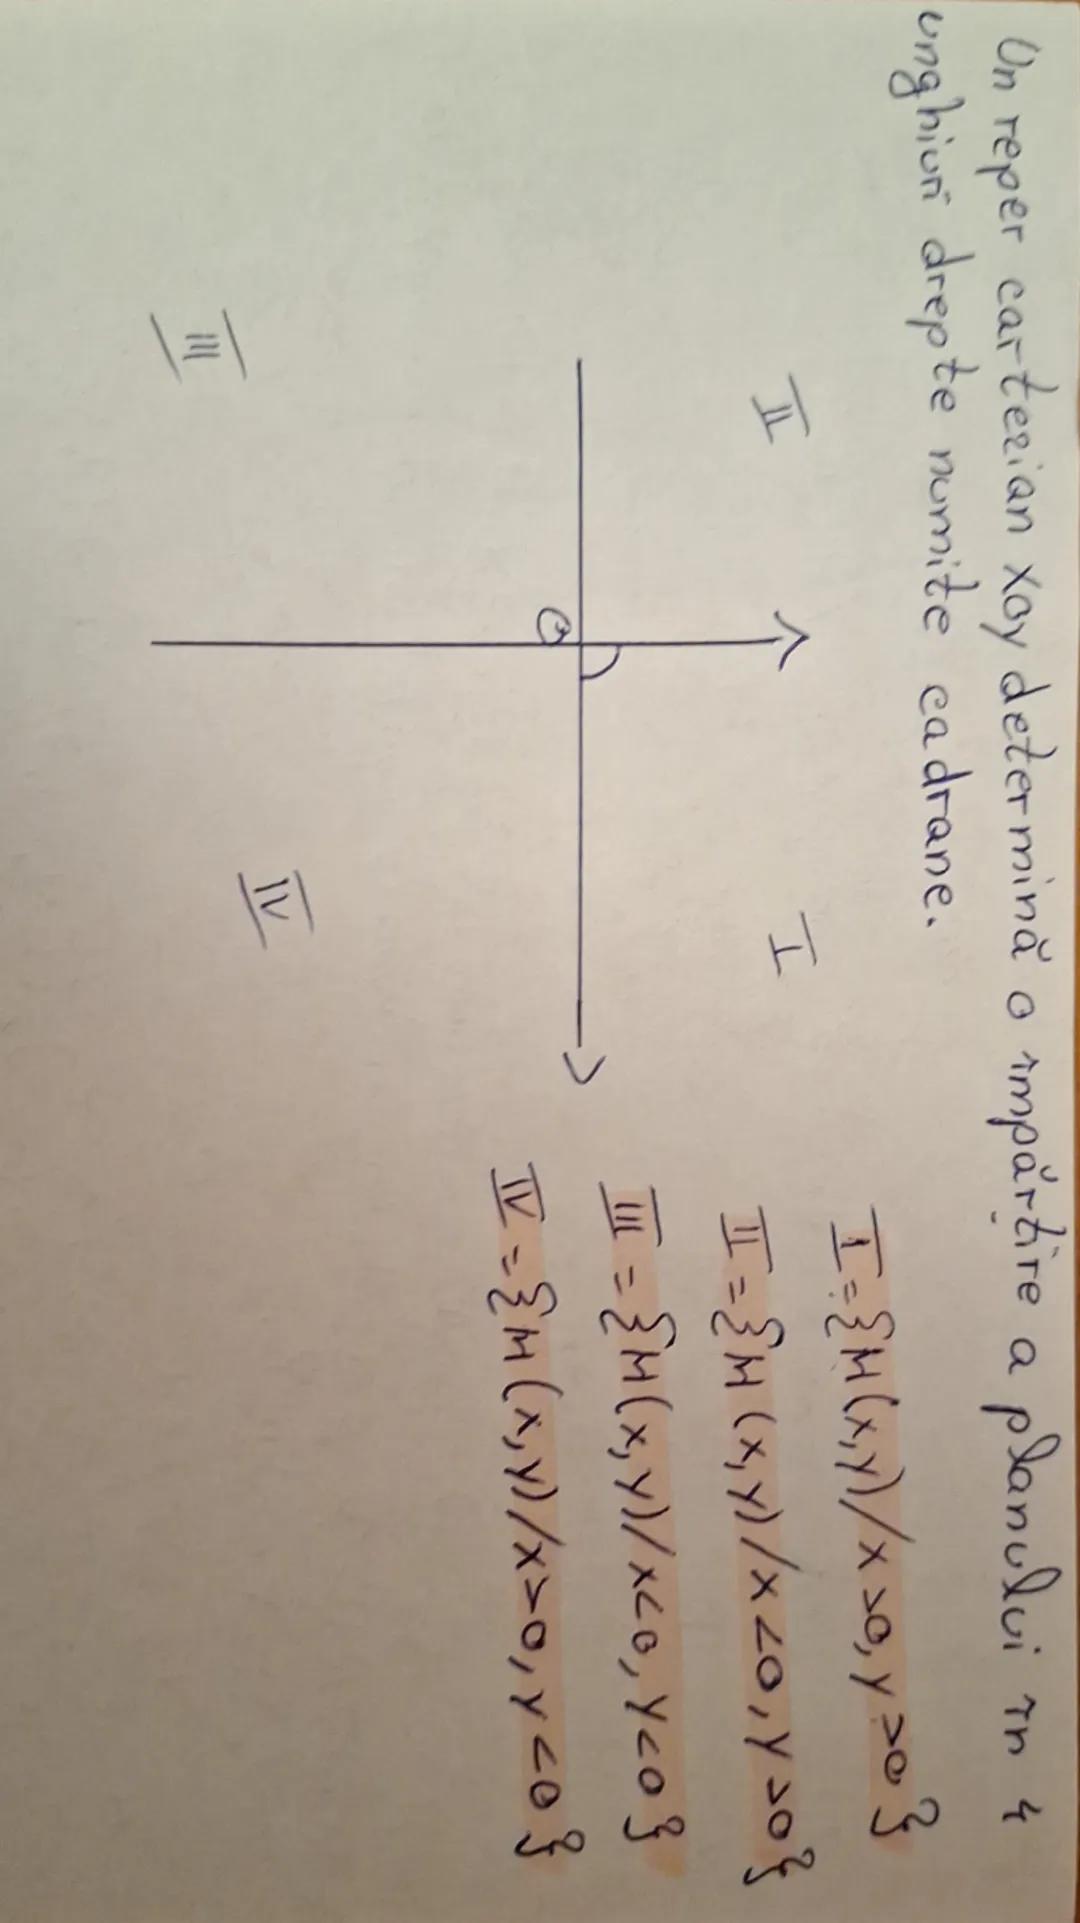 Un reper cartezian xOy determină o împărțire a planului în 4
unghiuri drepte numite cadrane.
II
I
O
III
IV
I = {M(x,y)/x>0, y>0}
II = {M(x,y)/x<0, y>0}
III = {M(x,y)/x<0, y<0}
IV = {M(x,y)/x>0, y<0}